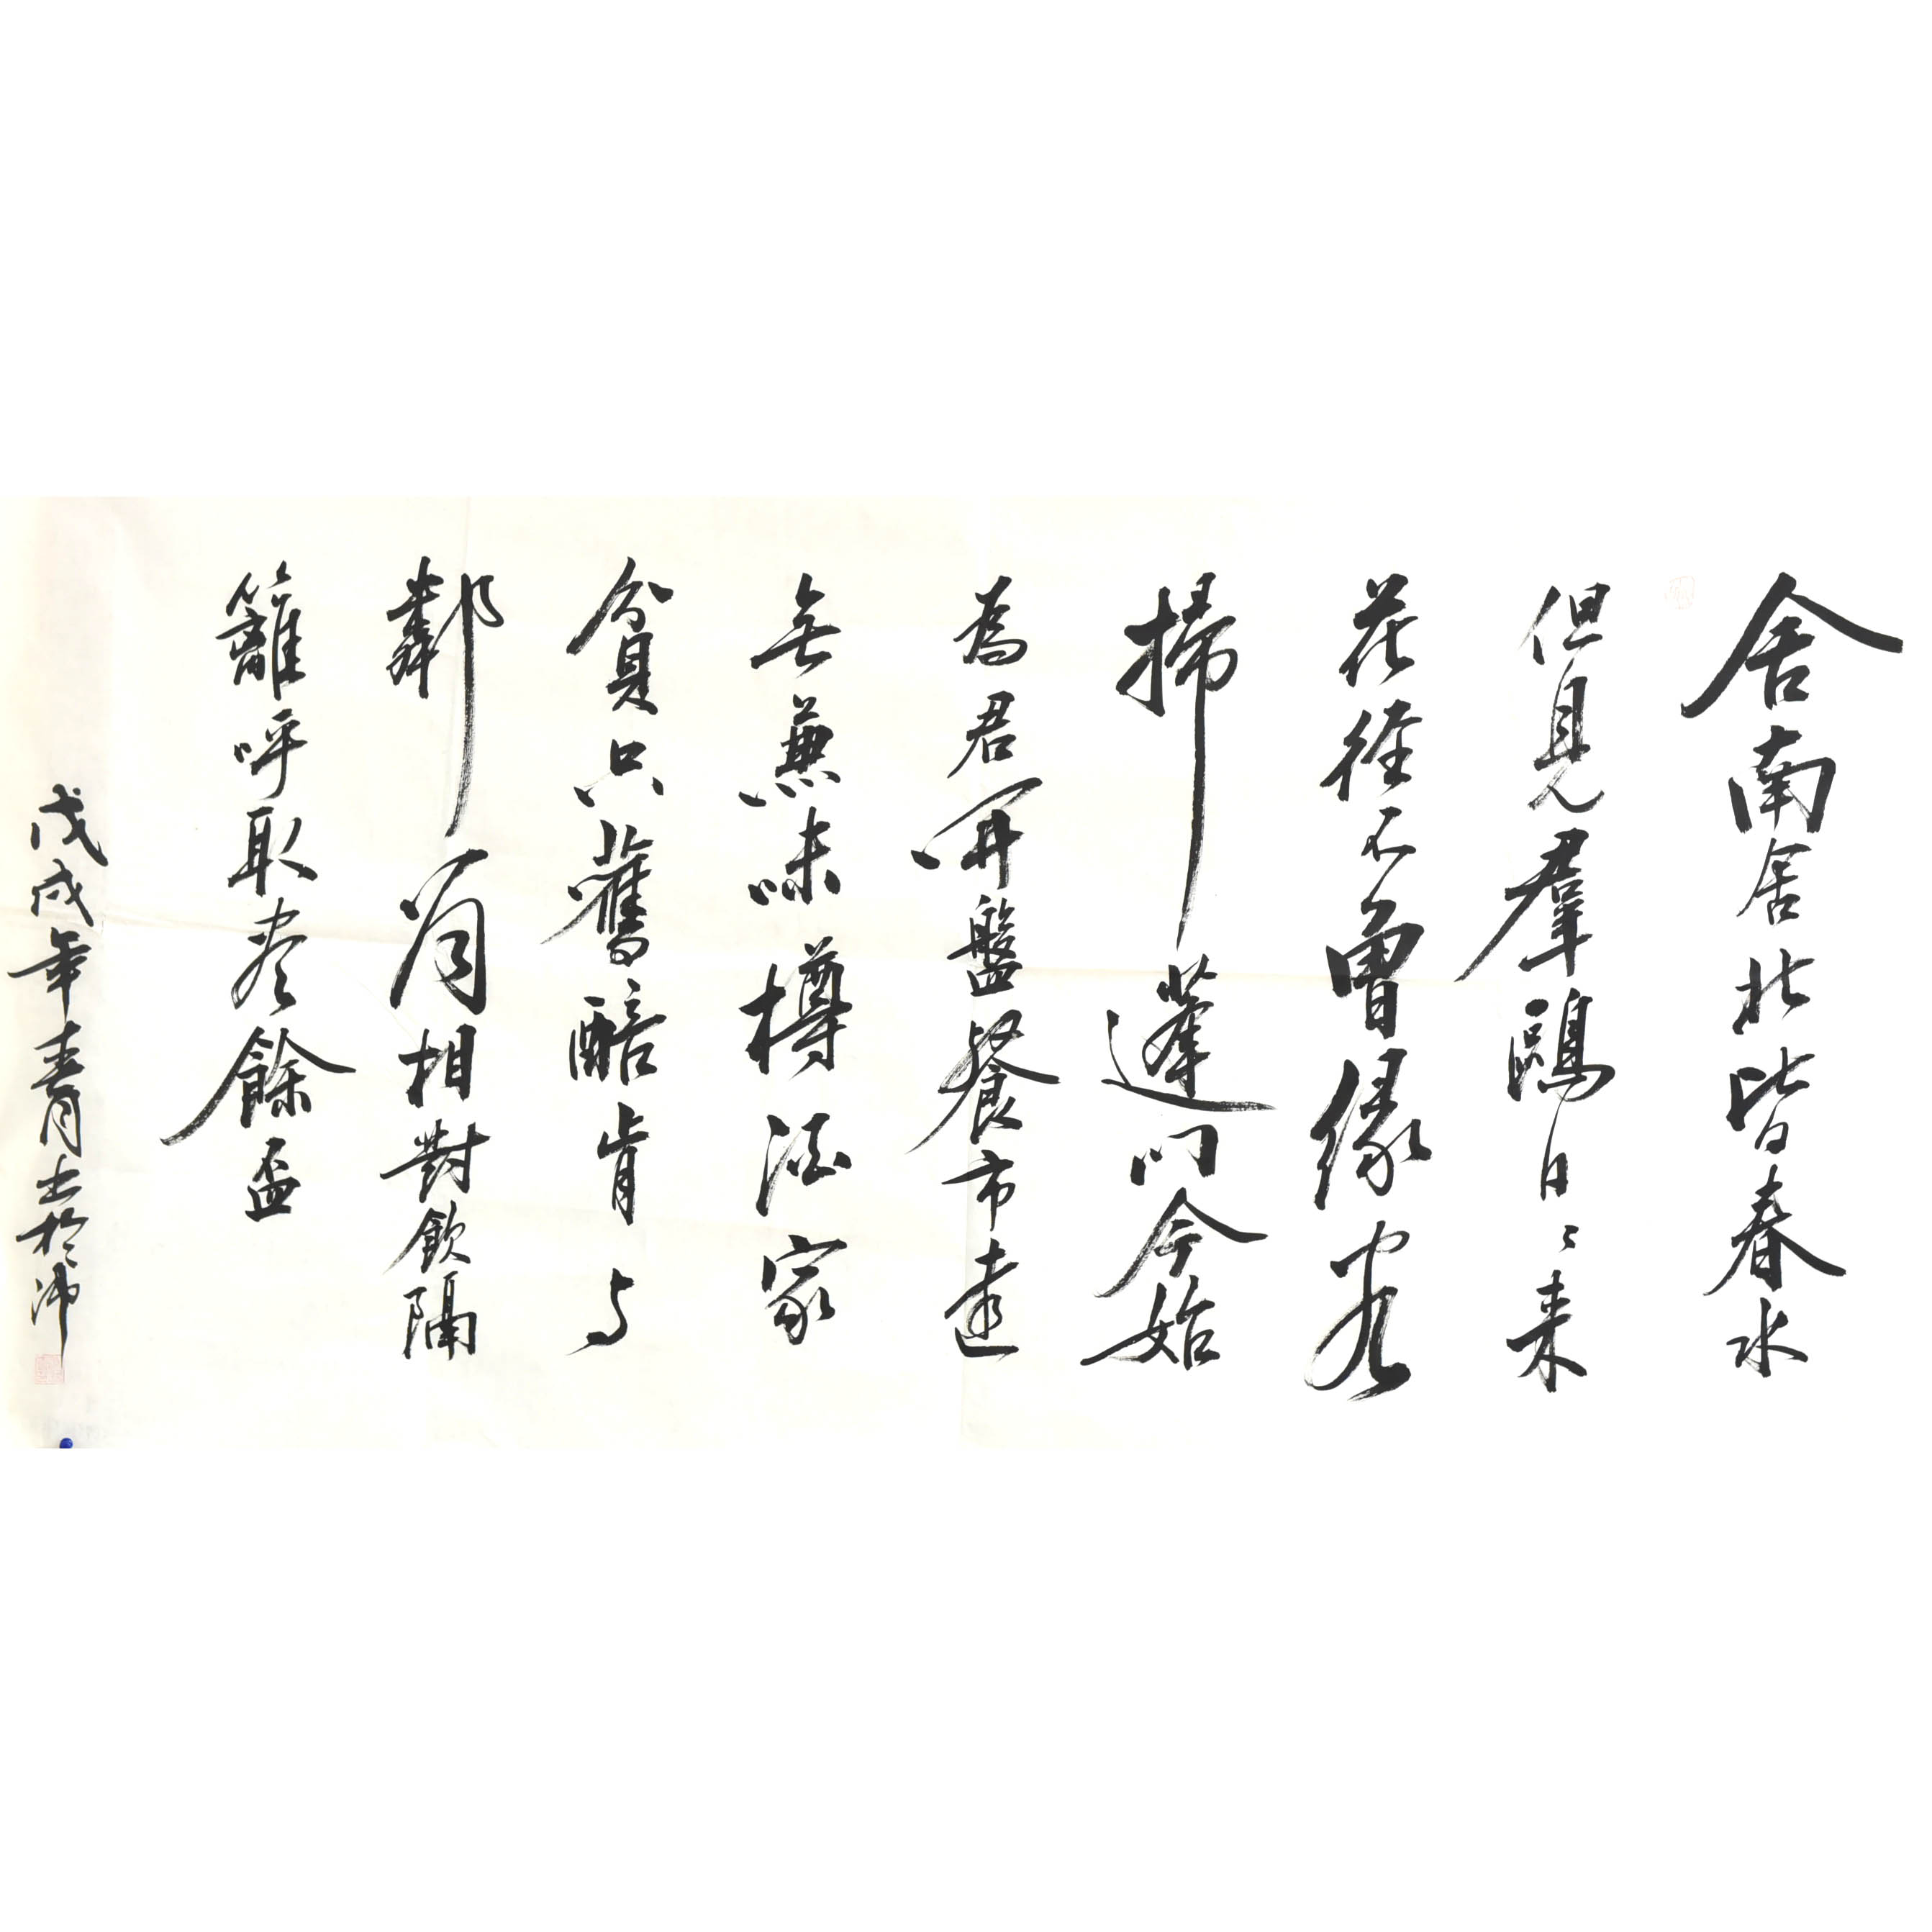 舍南舍北皆春水
但見羣鷗日〻来
花徑不曾緣客
掃蓬門今始
為君開盤餐市遠
無兼味樽酒家
貧只舊醅肯与
鄰翁相對飲隔
籬呼取盡餘盃
戊戌年青士於沛